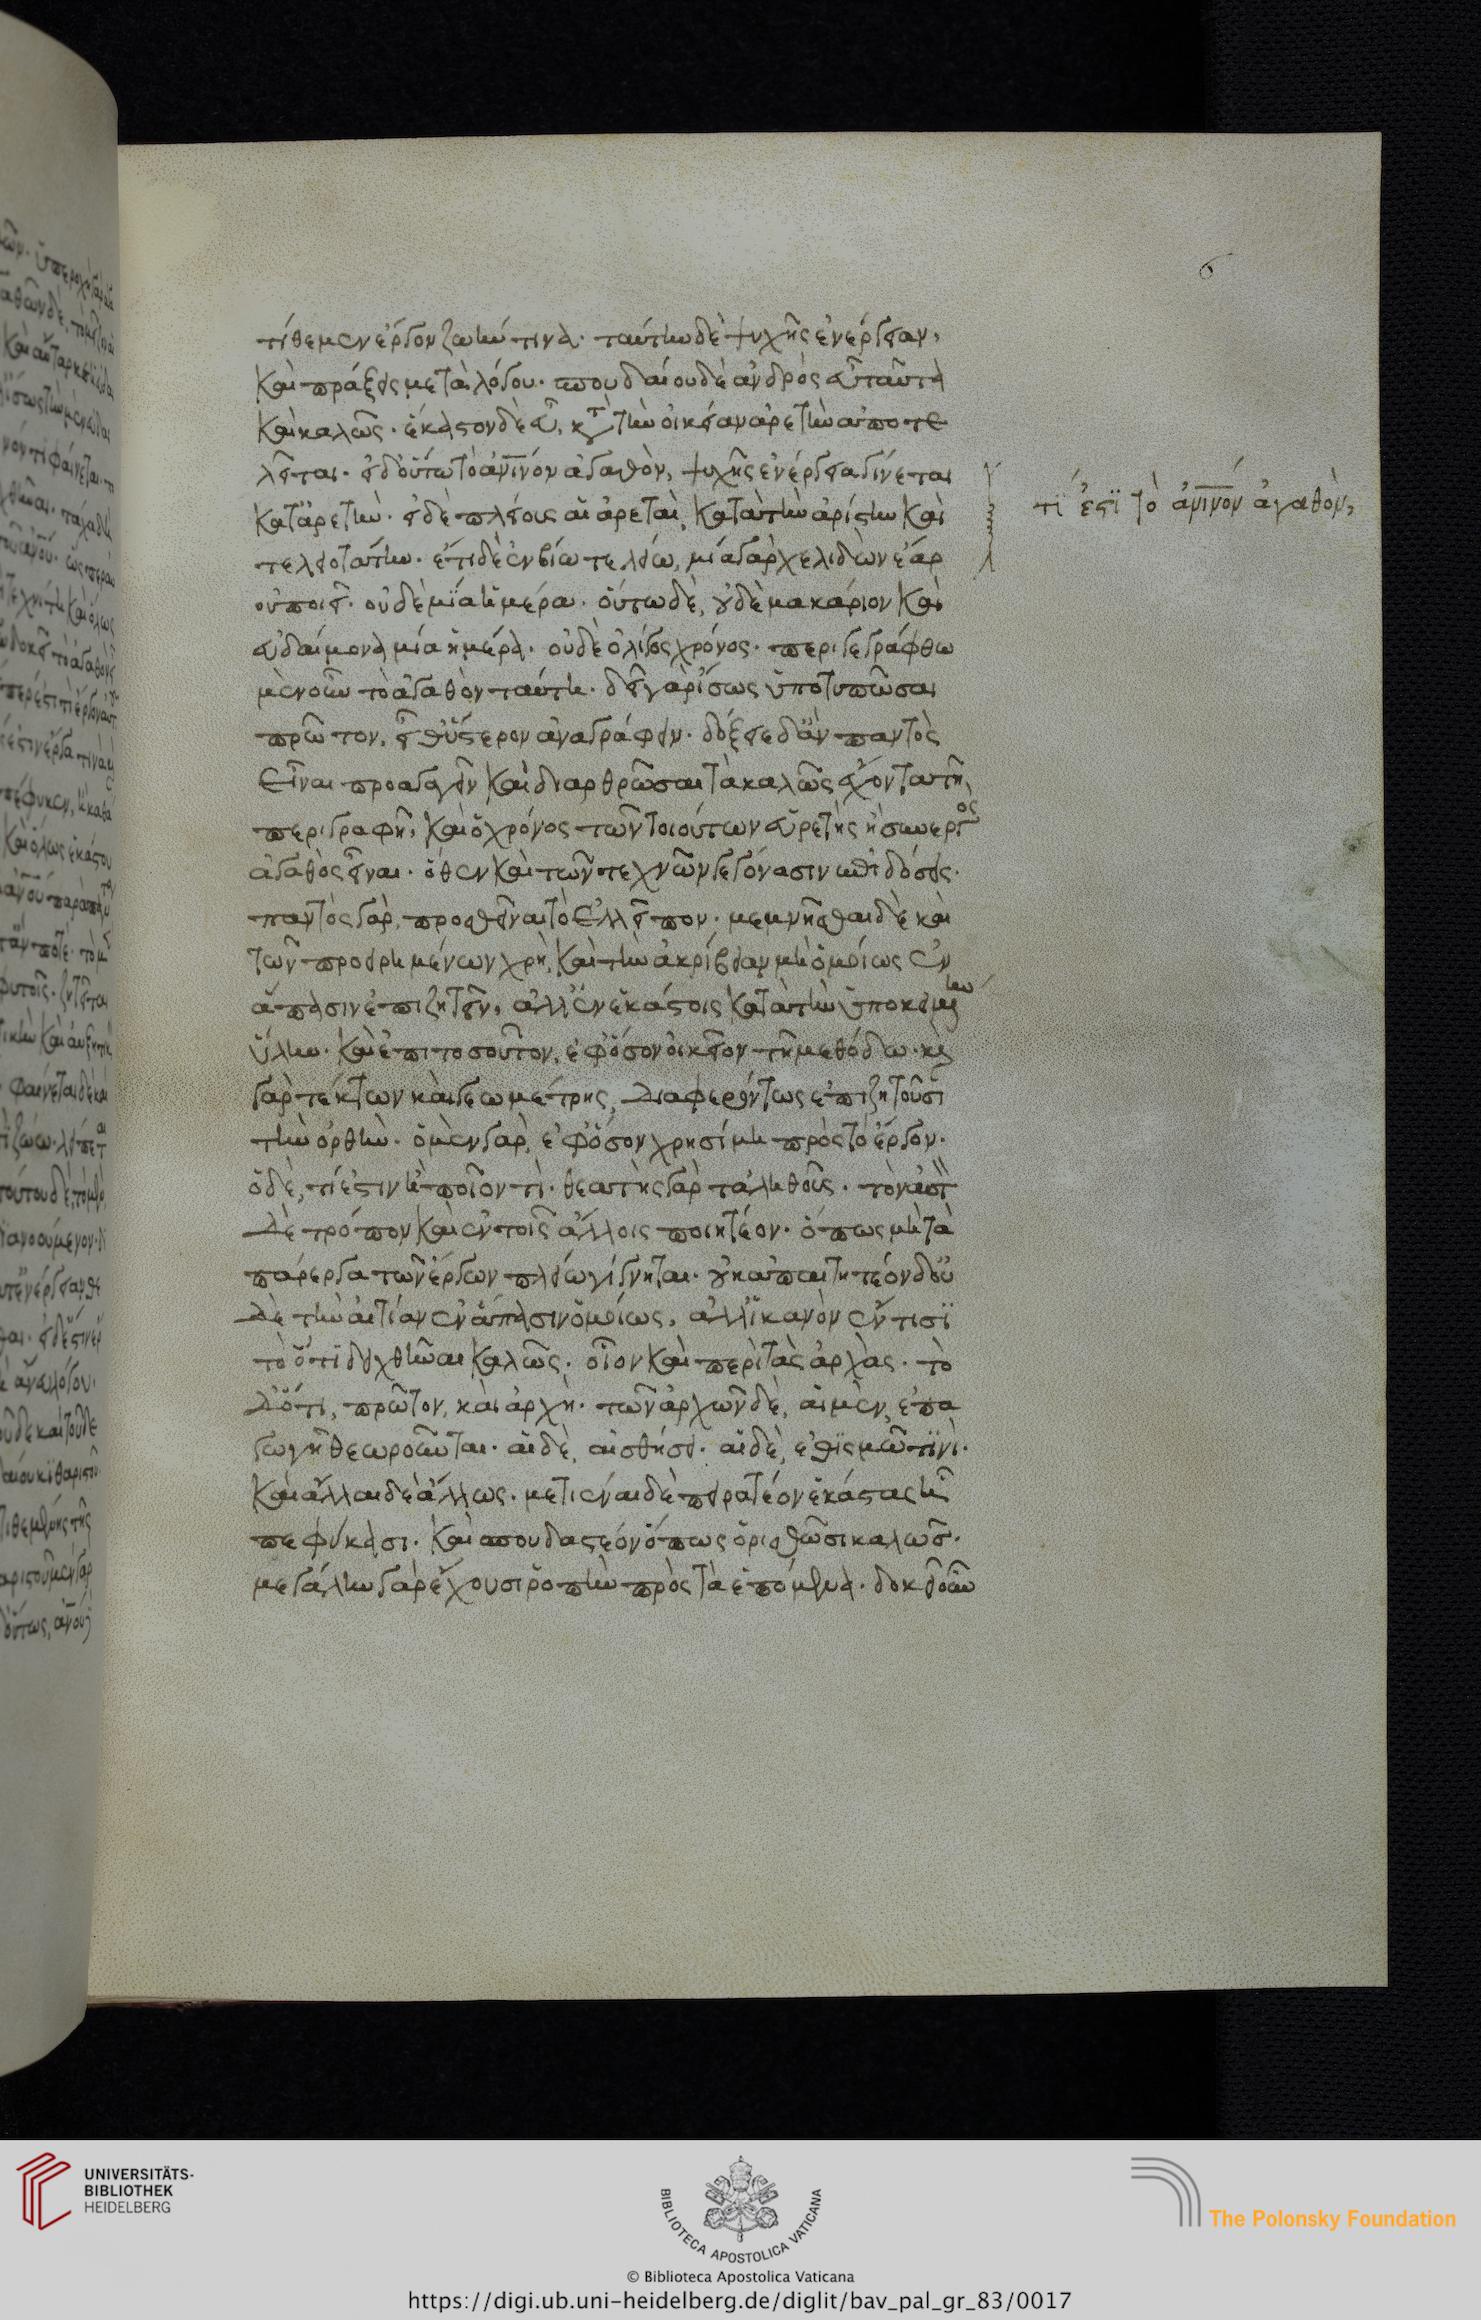 6
τίθεμεν ἔργον ζωήν τινα. ταύτην δὲ ψυχῆς ἐνέργειαν,
καὶ πράξεις μετὰ λόγου. σπουδαίου δὲ ἀνδρὸς εὖ ταῦτα
καὶ καλῶς. ἕκαστον δὲ εὖ, κατὰ τὴν οἰκείαν ἀρετὴν ἀποτε
λεῖται. εἰ δ' οὕτω τὸ ἀνινον ἀγαθὸν, ψυχῆς ἐνέργεια γίνεται
κατ' ἀρετήν. εἰ δὲ πλείους αἱ ἀρεταὶ, κατὰ τὴν ἀρίστην καὶ
τελειοτάτην. ἔτι δὲ ἐν βίω τελείω, μία γὰρ χελιδὼν ἔαρ
οὐ ποιεῖ. οὐδὲ μία ἡμέρα. οὕτω δὲ, οὐδὲ μακάριον καὶ
εὐδαίμονα μία ἡμέρα. οὐδὲ ὀλίγος χρόνος. περιγεγράφθω
μὲν οὖν τὸ ἀγαθὸν ταύτη. δεῖ γὰρ ἴσως ὑποτυπῶσαι
πρῶτον, εἶθ' ὕστερον ἀναγράφειν. δόξειε δ' ἂν παντὸς
εἶναι προαγαγεῖν καὶ διαρθρῶσαι τὰ καλῶς ἔχοντα τῆ
περιγραφῆ, καὶ ὁ χρόνος τῶν τοιούτων εὑρετὴς ἢ συνεργὸς
ἀγαθὸς εἶναι. ὅθεν καὶ τῶν τεχνῶν γεγόνασιν ἐπιδόσεις.
παντὸς γὰρ, προσθεῖναι τὸ ἐλλεῖπον. μεμνῆσθαι δὲ καὶ
τῶν προειρημένων χρὴ, καὶ τὴν ἀκρίβειαν μὴ ὁμοίως ἐν
ἅπασιν ἐπιζητεῖν, ἀλλ' ἐν ἑκάστοις κατὰ τὴν ὑποκειμένην
ὕλην. καὶ ἐπὶ τοσοῦτον, ἐφ' ὅσον οἰκεῖον τῆ μεθόδω. καὶ
γὰρ τέκτων καὶ γεωμέτρης, διαφερόντως ἐπιζητοῦσι
τὴν ὀρθήν. ὁ μὲν γὰρ, ἐφ' ὅσον χρησίμη πρὸς τὸ ἔργον.
ὁ δὲ, τί ἐστιν ἢ ποῖόν τι. θεατὴς γὰρ τἀληθοῦς. τὸν αὐτὸν
δὲ τρόπον καὶ ἐν τοῖς ἄλλοις ποιητέον. ὅπως μὴ τὰ
πάρεργα τῶν ἔργων πλείω γίγνηται. οὐκ ἀπαιτητέον δ' οὐ
δὲ τὴν αἰτίαν ἐν ἅπασιν ὁμοίως, ἀλλ' ἱκανὸν ἔν τισι
τὸ ὅτι δειχθῆναι καλῶς. οἷον καὶ περὶ τὰς ἀρχὰς. τὸ
δ' ὅτι, πρῶτον, καὶ ἀρχή. τῶν ἀρχῶν δὲ, αἱ μὲν, ἐπα
γωγῆ θεωροῦνται. αἱ δὲ, αἰσθήσει. αἱ δὲ, ἐθισμῶ τινὶ.
καὶ ἄλλαι δὲ ἄλλως. μετιέναι δὲ πειρατέον ἑκάστας ἧ
πεφύκασι. καὶ σπουδαστέον ὅπως ὁρισθῶσι καλῶς.
μεγάλην γὰρ ἔχουσι ῥοπὴν πρὸς τὰ ἑπόμενα. δοκεῖ οὖν
τί ἐστι τὸ ἀνινον ἀγαθὸν,
UNIVERSITÄTS-
BIBLIOTHEK
HEIDELBERG
BIBLIOTECA APOSTOLICA VATICANA
© Biblioteca Apostolica Vaticana
The Polonsky Foundation
https://digi.ub.uni-heidelberg.de/diglit/bav_pal_gr_83/0017